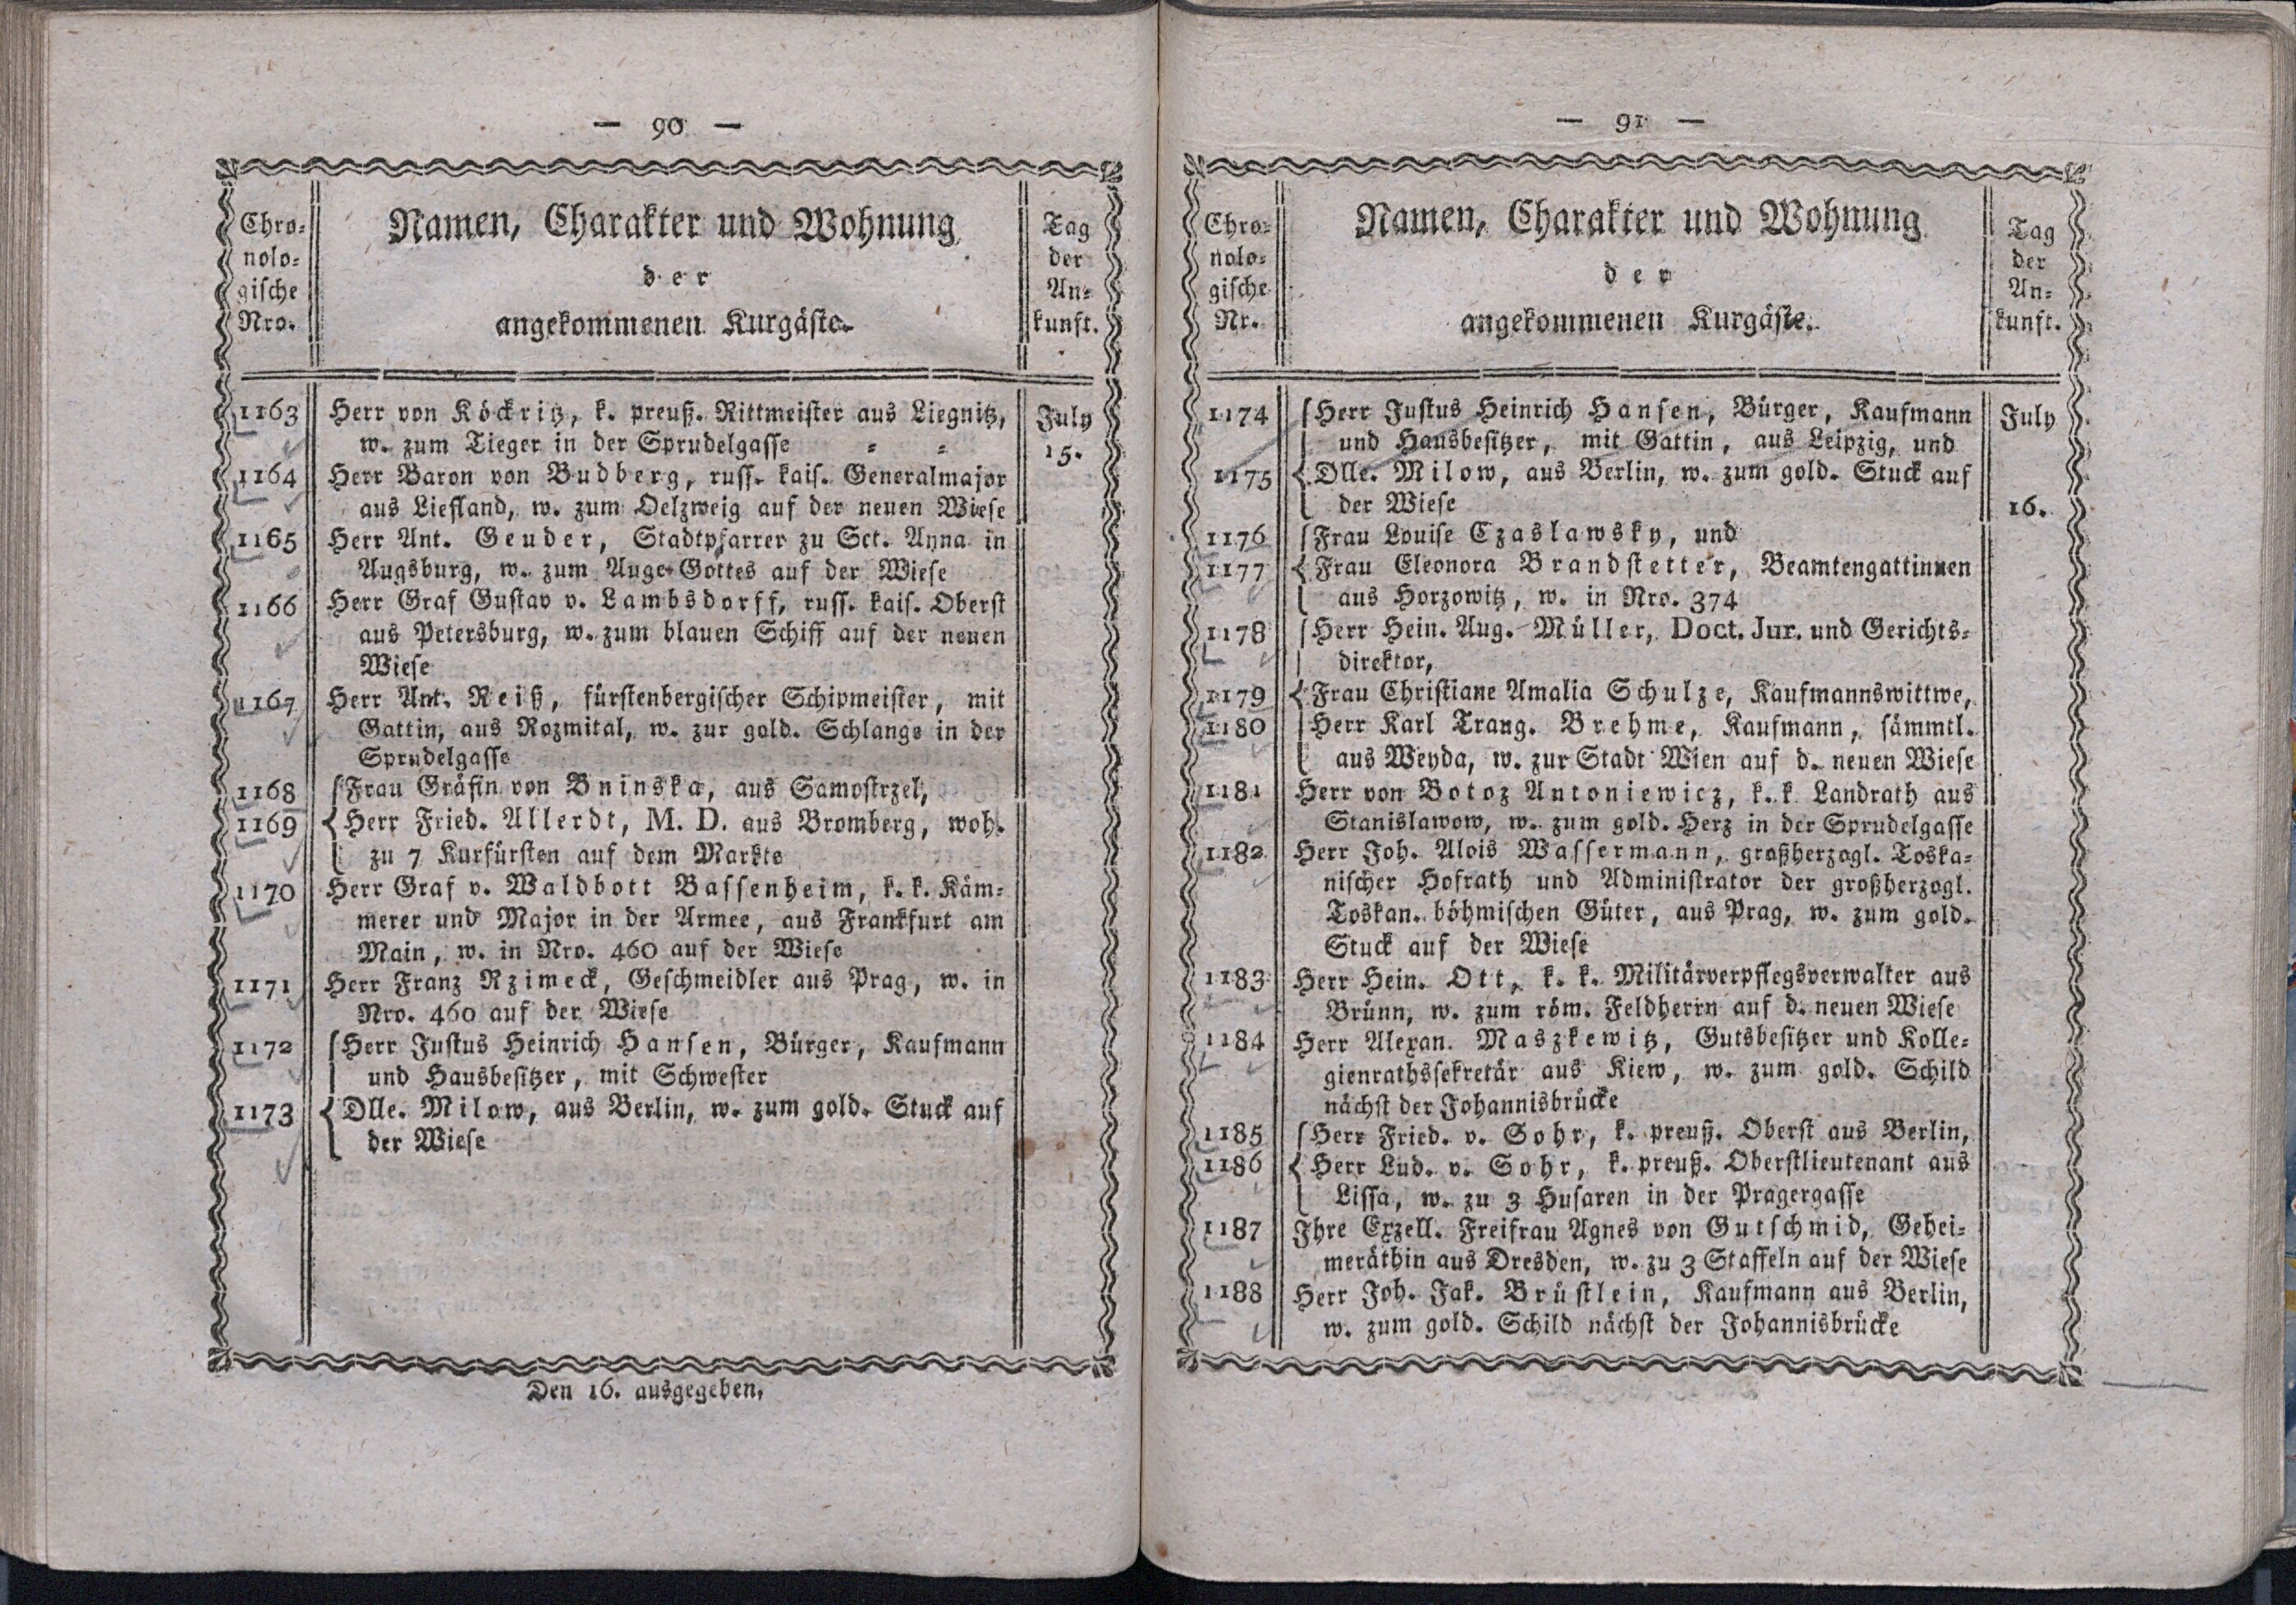 — 90 —
Chro-
nolo-
gische
Nro.
Namen, Charakter und Wohnung
der
angekommenen Kurgäste.
Tag
der
An-
kunft.
1163 Herr von Köckritz, k. preuß. Rittmeister aus Liegnitz, July
w. zum Tieger in der Sprudelgasse - - 15.
1164 Herr Baron von Budberg, russ. kais. Generalmajor
aus Liefland, w. zum Oelzweig auf der neuen Wiese
1165 Herr Ant. Geuder, Stadtpfarrer zu Sct. Anna in
Augsburg, w. zum Auge Gottes auf der Wiese
1166 Herr Graf Gustav v. Lambsdorff, russ. kais. Oberst
aus Petersburg, w. zum blauen Schiff auf der neuen
Wiese
1167 Herr Ant. Reiß, fürstenbergischer Schipmeister, mit
Gattin, aus Rozmital, w. zur gold. Schlange in der
Sprudelgasse
1168 Frau Gräfin von Bninska, aus Samostrzel,
1169 Herr Fried. Allerdt, M. D. aus Bromberg, woh.
zu 7 Kurfürsten auf dem Markte
1170 Herr Graf v. Waldbott Bassenheim, k. k. Käm-
merer und Major in der Armee, aus Frankfurt am
Main, w. in Nro. 460 auf der Wiese
1171 Herr Franz Rzimeck, Geschmeidler aus Prag, w. in
Nro. 460 auf der Wiese
1172 Herr Justus Heinrich Hansen, Bürger, Kaufmann
und Hausbesitzer, mit Schwester
1173 Dlle. Milow, aus Berlin, w. zum gold. Stuck auf
der Wiese
Den 16. ausgegeben,
— 91 —
Chro-
nolo-
gische
Nr.
Namen, Charakter und Wohnung
der
angekommenen Kurgäste.
Tag
der
An-
kunft.
1174 Herr Justus Heinrich Hansen, Bürger, Kaufmann July
und Hausbesitzer, mit Gattin, aus Leipzig, und
1175 Dlle. Milow, aus Berlin, w. zum gold. Stuck auf
der Wiese 16.
1176 Frau Louise Czaslawsky, und
1177 Frau Eleonora Brandstetter, Beamtengattinnen
aus Horzowitz, w. in Nro. 374
1178 Herr Hein. Aug. Müller, Doct. Jur. und Gerichts-
direktor,
1179 Frau Christiane Amalia Schulze, Kaufmannswittwe,
1180 Herr Karl Traug. Brehme, Kaufmann, sämmtl.
aus Weyda, w. zur Stadt Wien auf d. neuen Wiese
1181 Herr von Botoz Antoniewicz, k. k. Landrath aus
Stanislawow, w. zum gold. Herz in der Sprudelgasse
1182 Herr Joh. Alois Wassermann, großherzogl. Toska-
nischer Hofrath und Administrator der großherzogl.
Toskan. böhmischen Güter, aus Prag, w. zum gold.
Stuck auf der Wiese
1183 Herr Hein. Ott, k. k. Militärverpflegsverwalter aus
Brünn, w. zum röm. Feldherrn auf d. neuen Wiese
1184 Herr Alexan. Maszkewitz, Gutsbesitzer und Kolle-
gienrathssekretär aus Kiew, w. zum gold. Schild
nächst der Johannisbrücke
1185 Herr Fried. v. Sohr, k. preuß. Oberst aus Berlin,
1186 Herr Lud. v. Sohr, k. preuß. Oberstlieutenant aus
Lissa, w. zu 3 Husaren in der Pragergasse
1187 Ihre Exzell. Freifrau Agnes von Gutschmid, Gehei-
meräthin aus Dresden, w. zu 3 Staffeln auf der Wiese
1188 Herr Joh. Jak. Brüstlein, Kaufmann aus Berlin,
w. zum gold. Schild nächst der Johannisbrücke